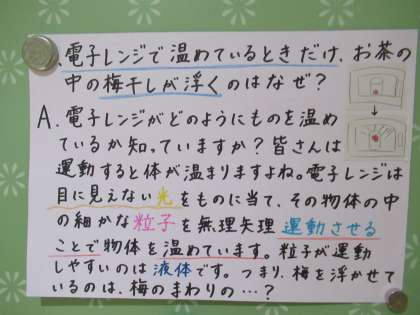 電子レンジで温めているときだけ、お茶の
中の梅干しが浮くのはなぜ？
A. 電子レンジがどのようにものを温め
ているか知っていますか？皆さんは
運動すると体が温まりますよね。電子レンジは
目に見えない光をものに当て、その物体の中
の細かな粒子を無理矢理運動させる
ことで物体を温めています。粒子が運動
しやすいのは液体です。つまり、梅を浮かせて
いるのは、梅のまわりの…？